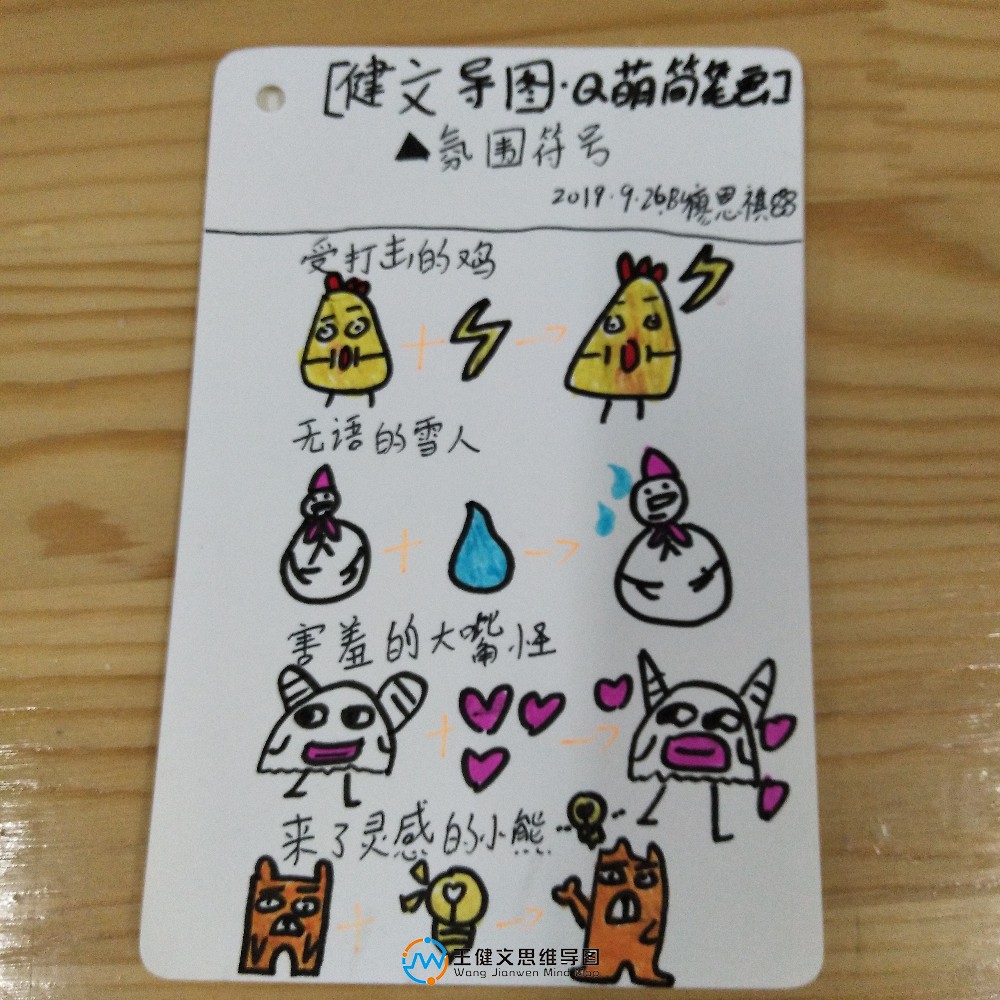 [健文导图·Q萌简笔画]
▲氛围符号
2019.9.26By 廖思祺
受打击的鸡
无语的雪人
害羞的大嘴怪
来了灵感的小熊
王健文思维导图
Wang Jianwen Mind Map